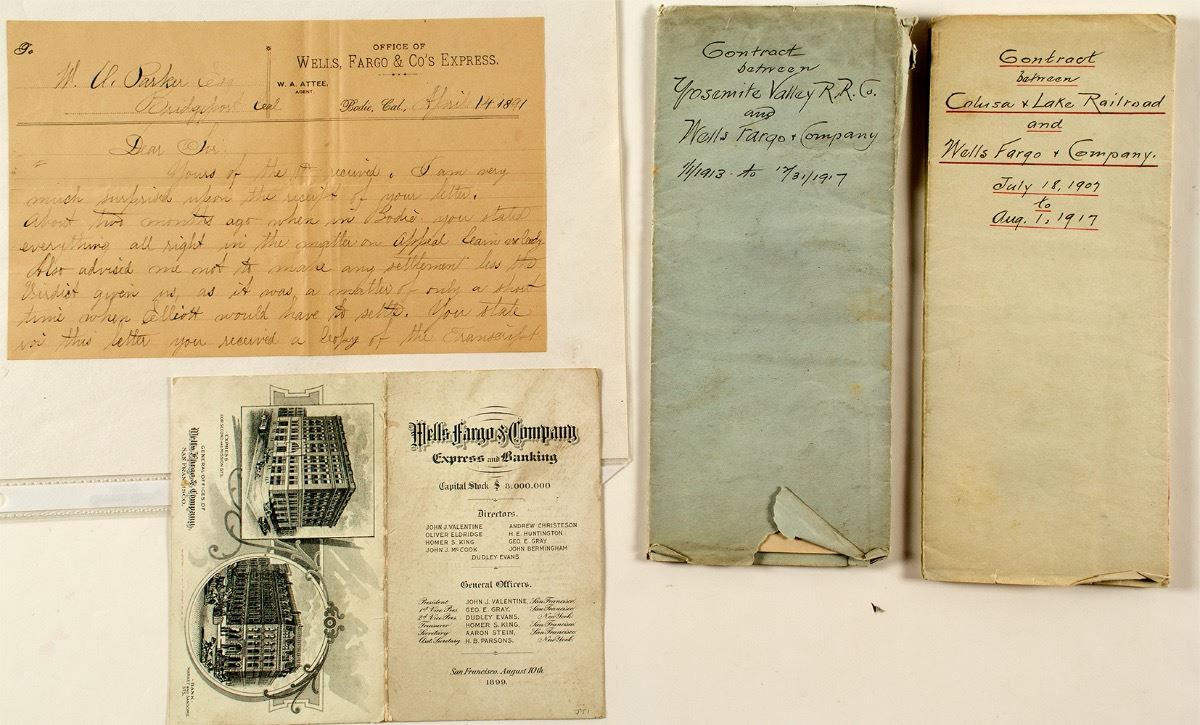 To
OFFICE OF
WELLS, FARGO & CO'S EXPRESS.
W. A. ATTEE,
AGENT.
W. O. Parker Esq
Bridgeport Cal
Bodie, Cal., April 14 1891
Dear Sir.
Yours of the received. I am very
much surprised upon the receipt of your letter.
About two months ago when in Bodie you stated
everything all right in the matter on Appeal
Also advised me not to make any settlement less the
Verdict given us, as it was a matter of only a short
time when Elliott would have to settle. You state
in this letter you received a Copy of the Transcript
Contract
between
Yosemite Valley R.R. Co.
and
Wells Fargo & Company
1/1/1913 to 12/31/1917
Contract
between
Colusa & Lake Railroad
and
Wells Fargo & Company.
July 18, 1907
to
Aug. 1, 1917
EXPRESS
COR SECOND AND MISSION STS.
GENERAL OFFICES OF
Wells Fargo & Company,
SAN FRANCISCO.
BANK
MARKET AND SANSOME STS.
Wells Fargo & Company
Express and Banking
Capital Stock $ 8,000,000
Directors.
JOHN J. VALENTINE ANDREW CHRISTESON
OLIVER ELDRIDGE H. E. HUNTINGTON
HOMER S. KING GEO. E. GRAY
JOHN J. McCOOK JOHN BERMINGHAM
DUDLEY EVANS
General Officers.
President JOHN J. VALENTINE, San Francisco
1st Vice Pres. GEO. E. GRAY, San Francisco
2d Vice Pres. DUDLEY EVANS, New York
Treasurer HOMER S. KING, San Francisco
Secretary AARON STEIN, San Francisco
Asst. Secretary H. B. PARSONS, New York
San Francisco, August 10th
1899.